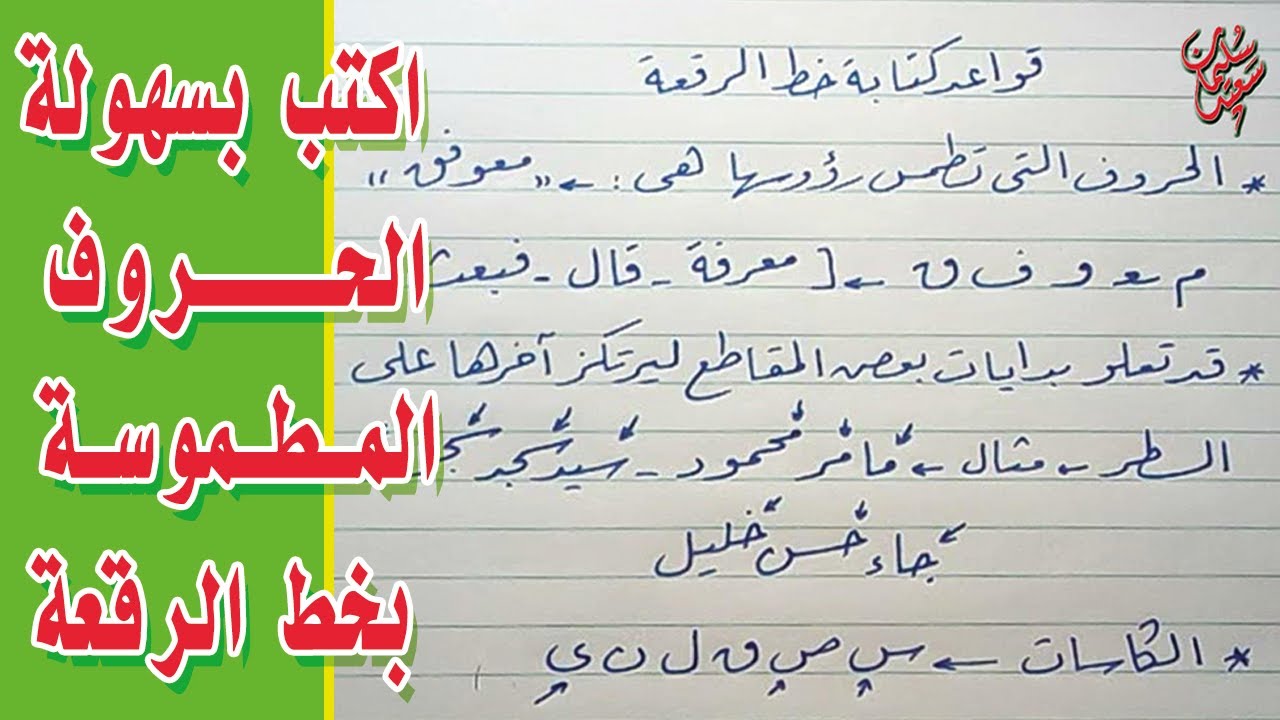 قواعد كتابة خط الرقعة
* الحروف التى تطمس رؤوسها هى : ← "معوفق"
م ـعـ و ف ق ← [ معرفة - قال - فبعث
* قد تعلو بدايات بعض المقاطع ليرتكز آخرها على
السطر ← مثال ← محمود - سيد
جاء حسن خليل
* الكاسات ← س ص ق ل ن ي
سليمان سعيد
اكتب بسهولة
الحروف
المطموسة
بخط الرقعة